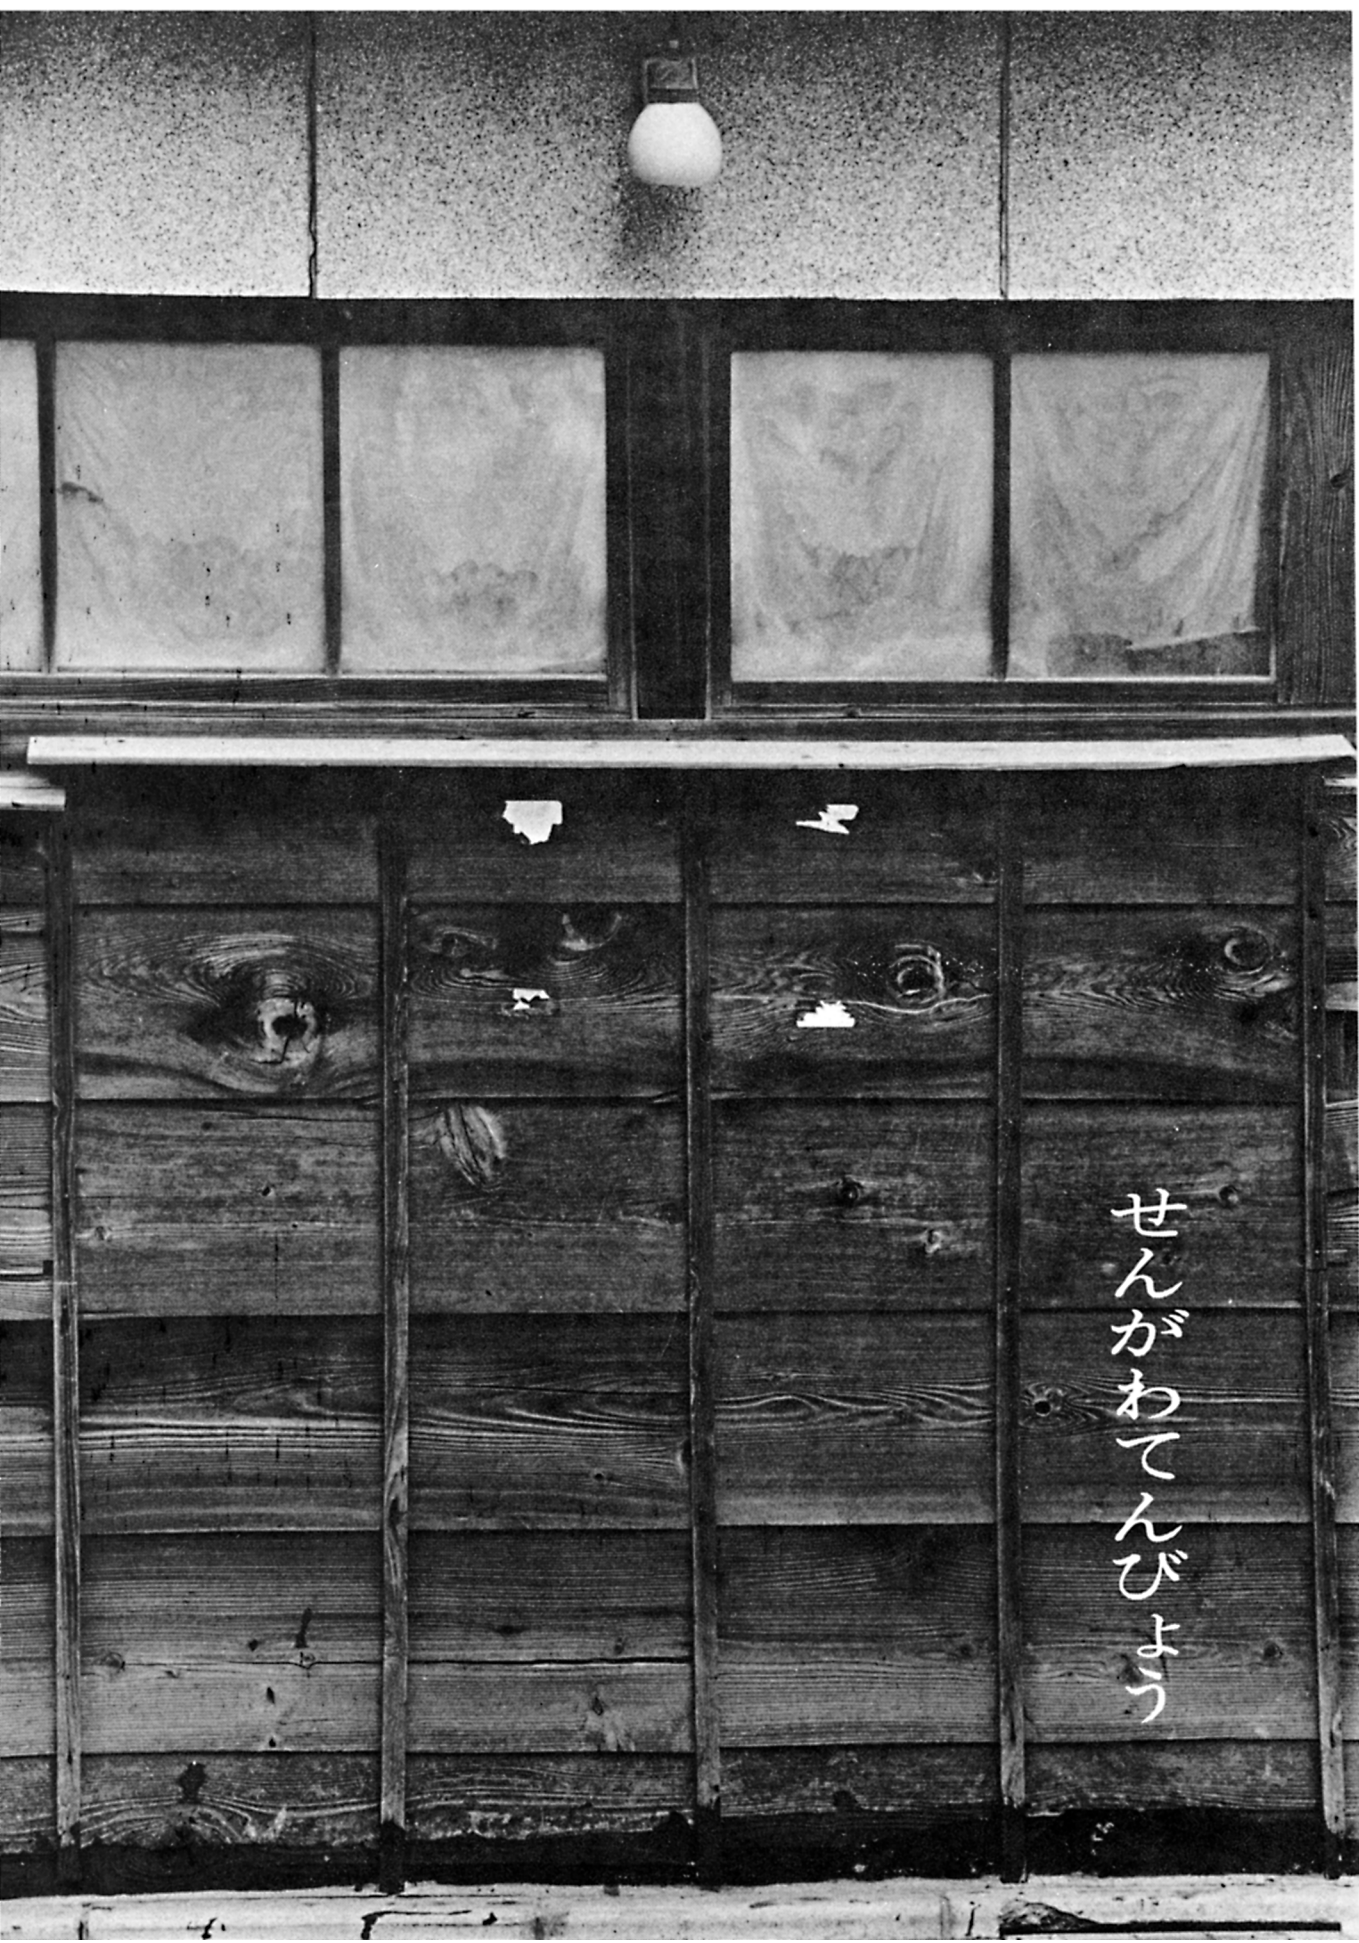 せんがわてんびょう